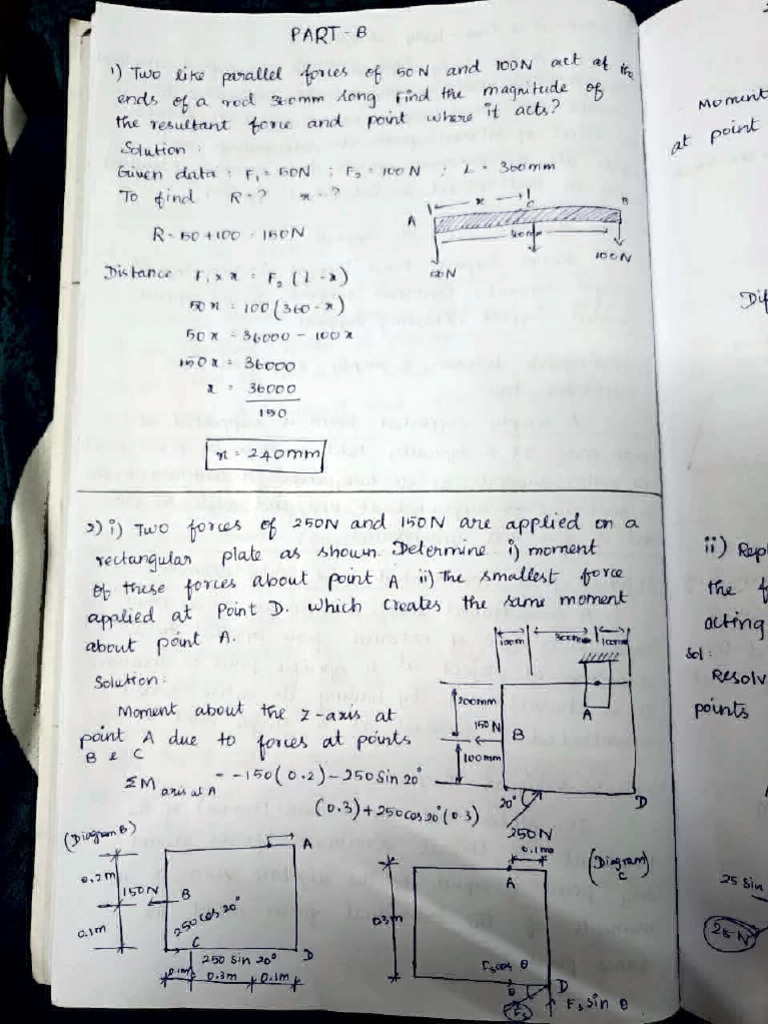 PART-B
1) Two like parallel forces of 50N and 100N act at the
ends of a rod 360mm long. Find the magnitude of
the resultant force and point where it acts?
Solution :
Given data : F₁ = 50N ; F₂ = 100N ; L = 360mm
To find R=? x=?
x
C
A
B
50N
100N
R = 50+100 = 150N
Distance F₁ × x = F₂ (L-x)
50x = 100(360-x)
50x = 36000 - 100x
150x = 36000
x = 36000
150
x = 240mm
2) i) Two forces of 250N and 150N are applied on a
rectangular plate as shown. Determine i) moment
of these forces about point A ii) The smallest force
applied at Point D. which creates the same moment
about point A.
Solution:
Moment about the z-axis at
point A due to forces at points
B & C
ΣM axis at A = -150(0.2) - 250 Sin 20°
(0.3) + 250 cos 20° (0.3)
100m
200mm
150N
100mm
A
B
20°
D
250N
(Diagram B)
A
0.2m
150N
B
0.1m
250 cos 20°
C
250 Sin 20°
D
0.1m
0.3m
0.1m
0.1m
(Diagram)
C
A
0.3m
F₃ cos θ
θ
D
F₃
F₃ Sin θ
Moment
at point
Dif
ii) Repl
the f
acting
Sol:
Resolv
points
25 Sin
25N